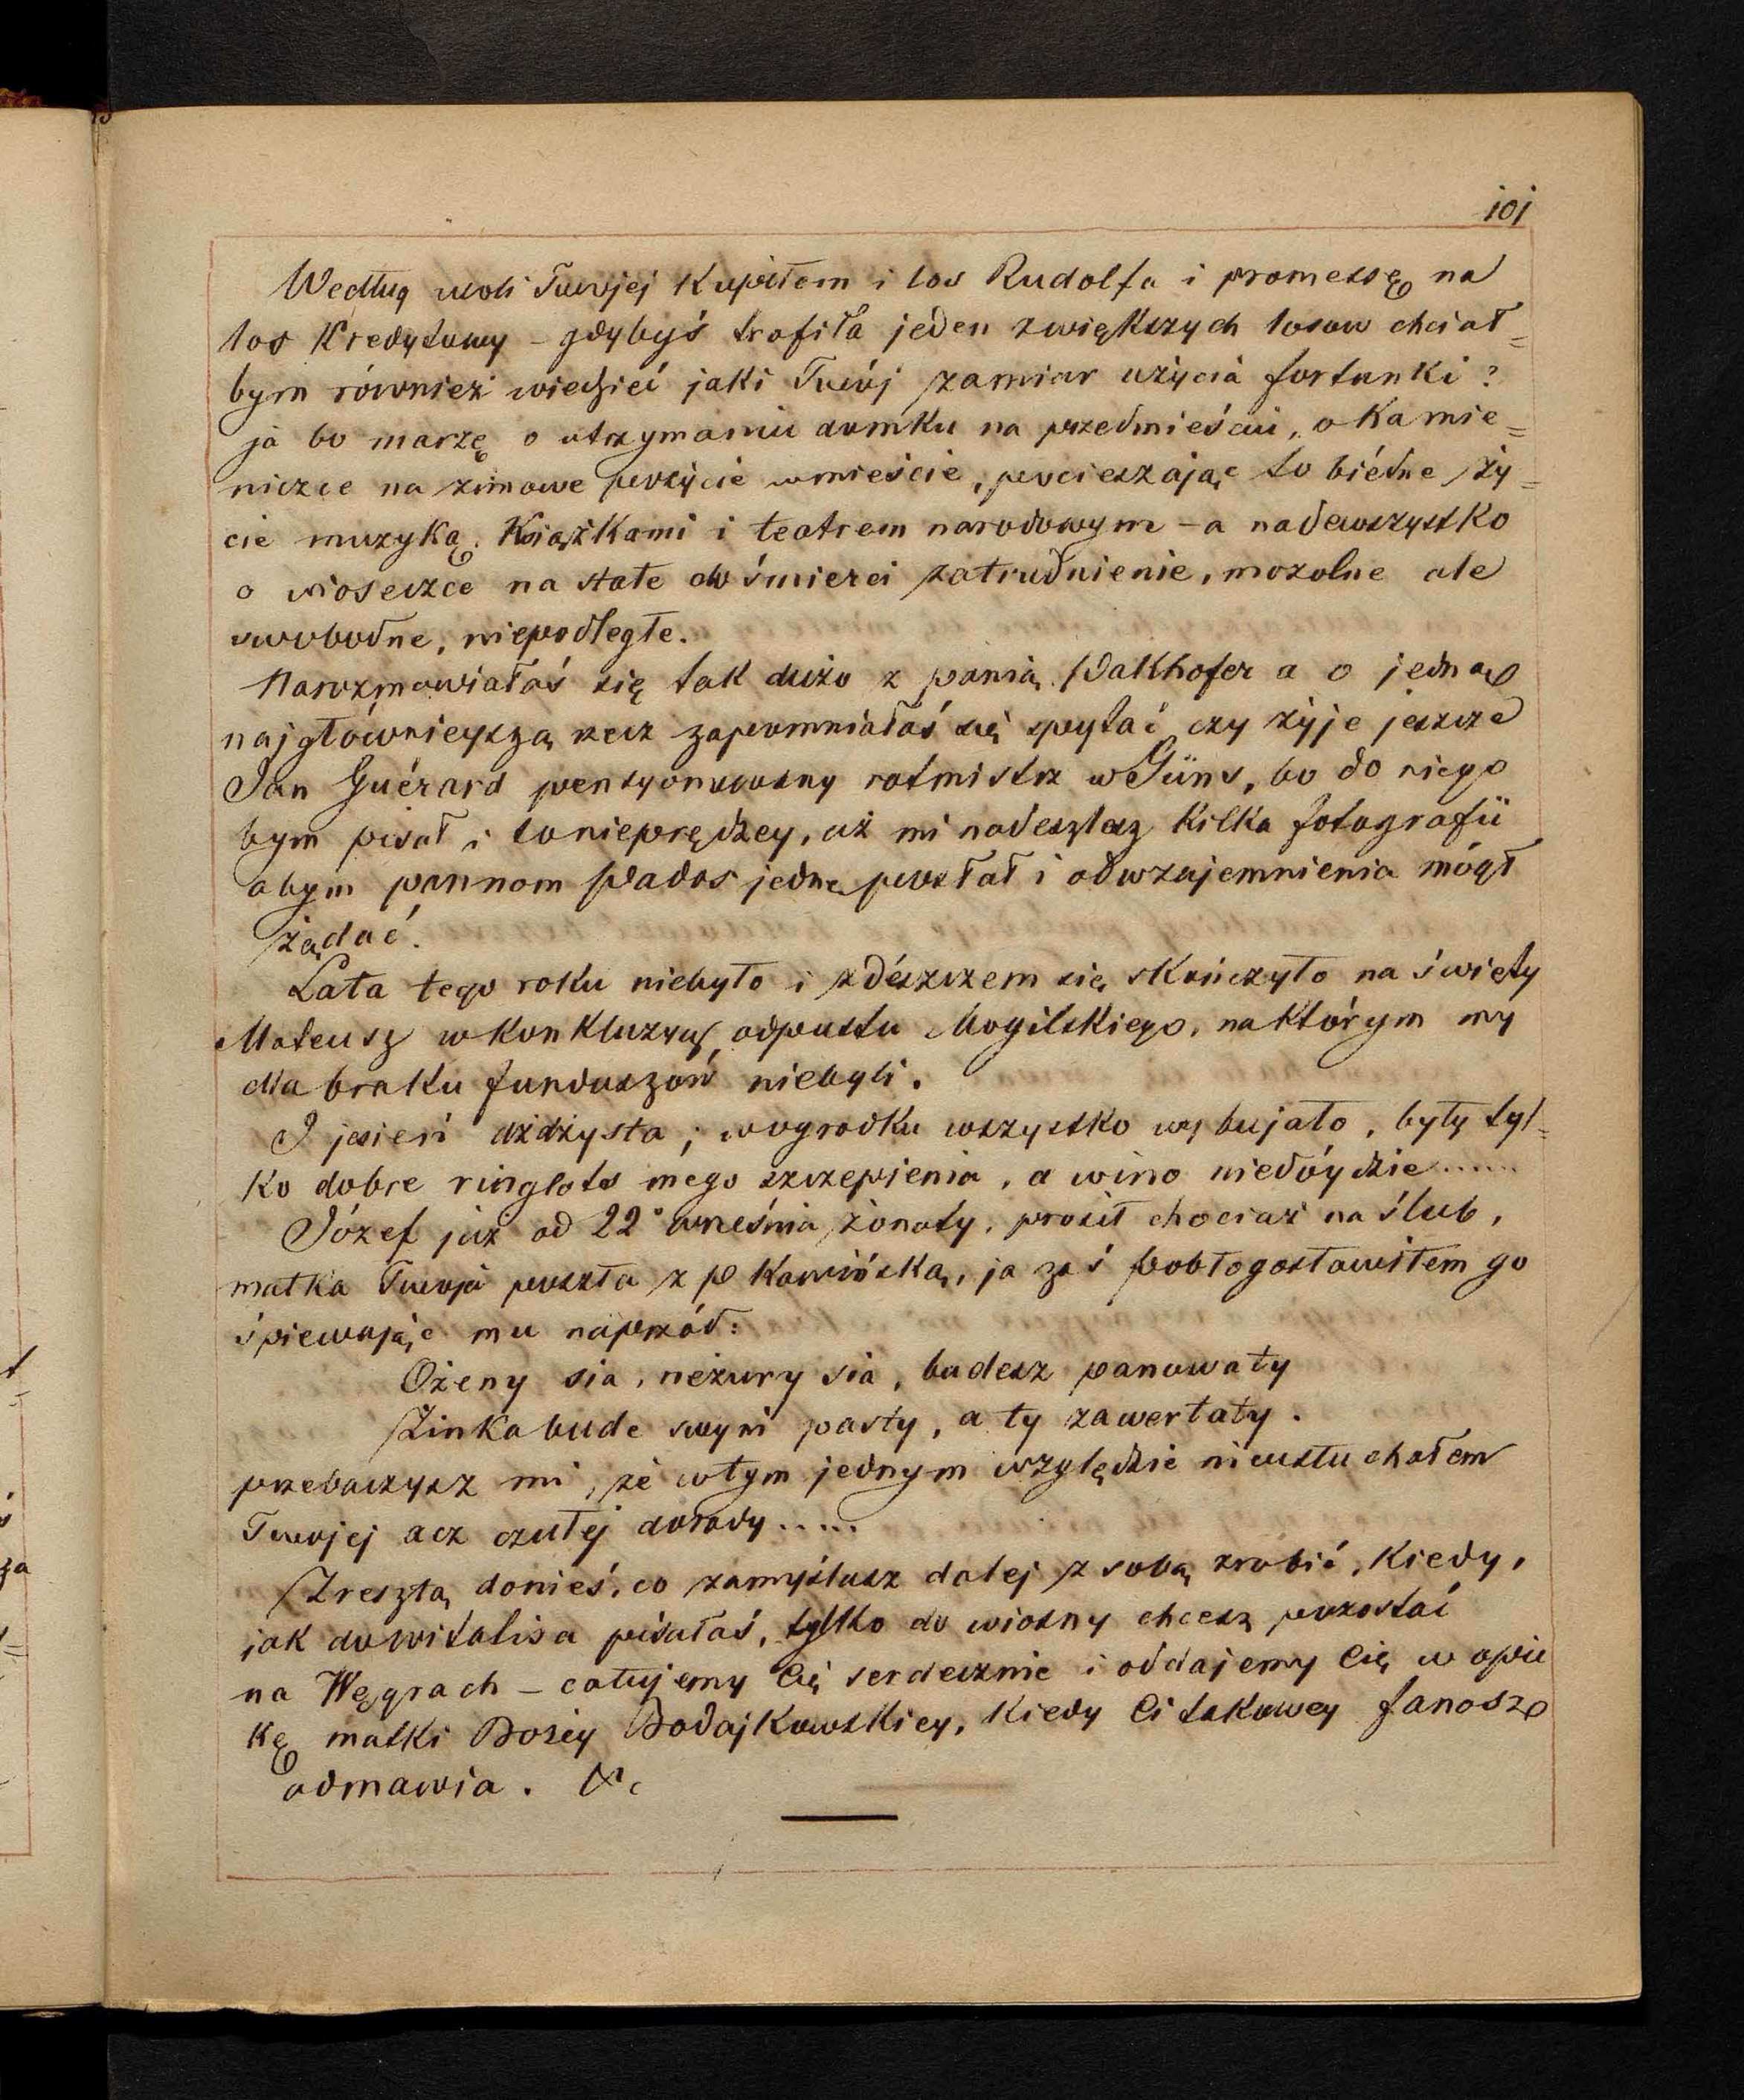 101
Według woli Twojej kupiłem i los Rudolfa i promessę na
los Kredytowy – gdybyś trafiła jeden zwiększych losow chciał=
bym również wiedzieć jaki Twój zamiar użycia fortunki?
ja bo marzę o utrzymaniu domku na przedmieściu, o Kamie=
niczce na zimowe pożycie wmieście, pocieszając to biédne ży=
cie muzyką. Książkami i teatrem narodowym – a nadewszystko
o wioseczce na stałe do śmierci zatrudnienie, mozolne ale
swobodne, niepodległe.
Narozmawiałaś się tak dużo z panią Walkhofer a o jedną
najgłównieyszą rzecz zapomniałaś się spytać czy żyje jeszcze
Jan Guérard pensyonowany rotmistrz w Güns, bo do niego
bym pisał i to nieprędzey, aż mi nadeszlesz kilka fotografii
abym pannom Pados jedne posłał i odwzajemnienia mógł
żądać.
Lata tego roku niebyło i zdészczem się skończyło na święty
Mateusz w Konkluzyą odpustu Mogilskiego, naktórym my
dla braku funduszów niebyli.
I jesień dżdżysta; wogrodku wszystko wybujało, były tyl=
ko dobre ringlots mego szczepienia, a wino niedóydzie......
Józef już od 22° września żonaty, prosił chociaż na ślub,
matka Twoja poszła z p Kamińską, ja zaś pobłogosławiłem go
śpiewając mu naprzód:
Ożeny sia, neżury sia, budesz panowaty
Żinka bude swyni pasty, a ty zawertaty.
przebaczysz mi, że wtym jednym względzie nieusłuchałem
Twojej acz czułej dorady.....
Zresztą donieś, co zamyślasz dalej z sobą zrobić, Kiedy,
jak do witalisa pisałaś, tylko do wiosny chcesz pozostać
na Węgrach – całujemy Cię serdecznie i oddajemy Cię w opie
kę matki Bożey Bodajkowskiey, Kiedy Ci takowey Janosz
odmawia. &c